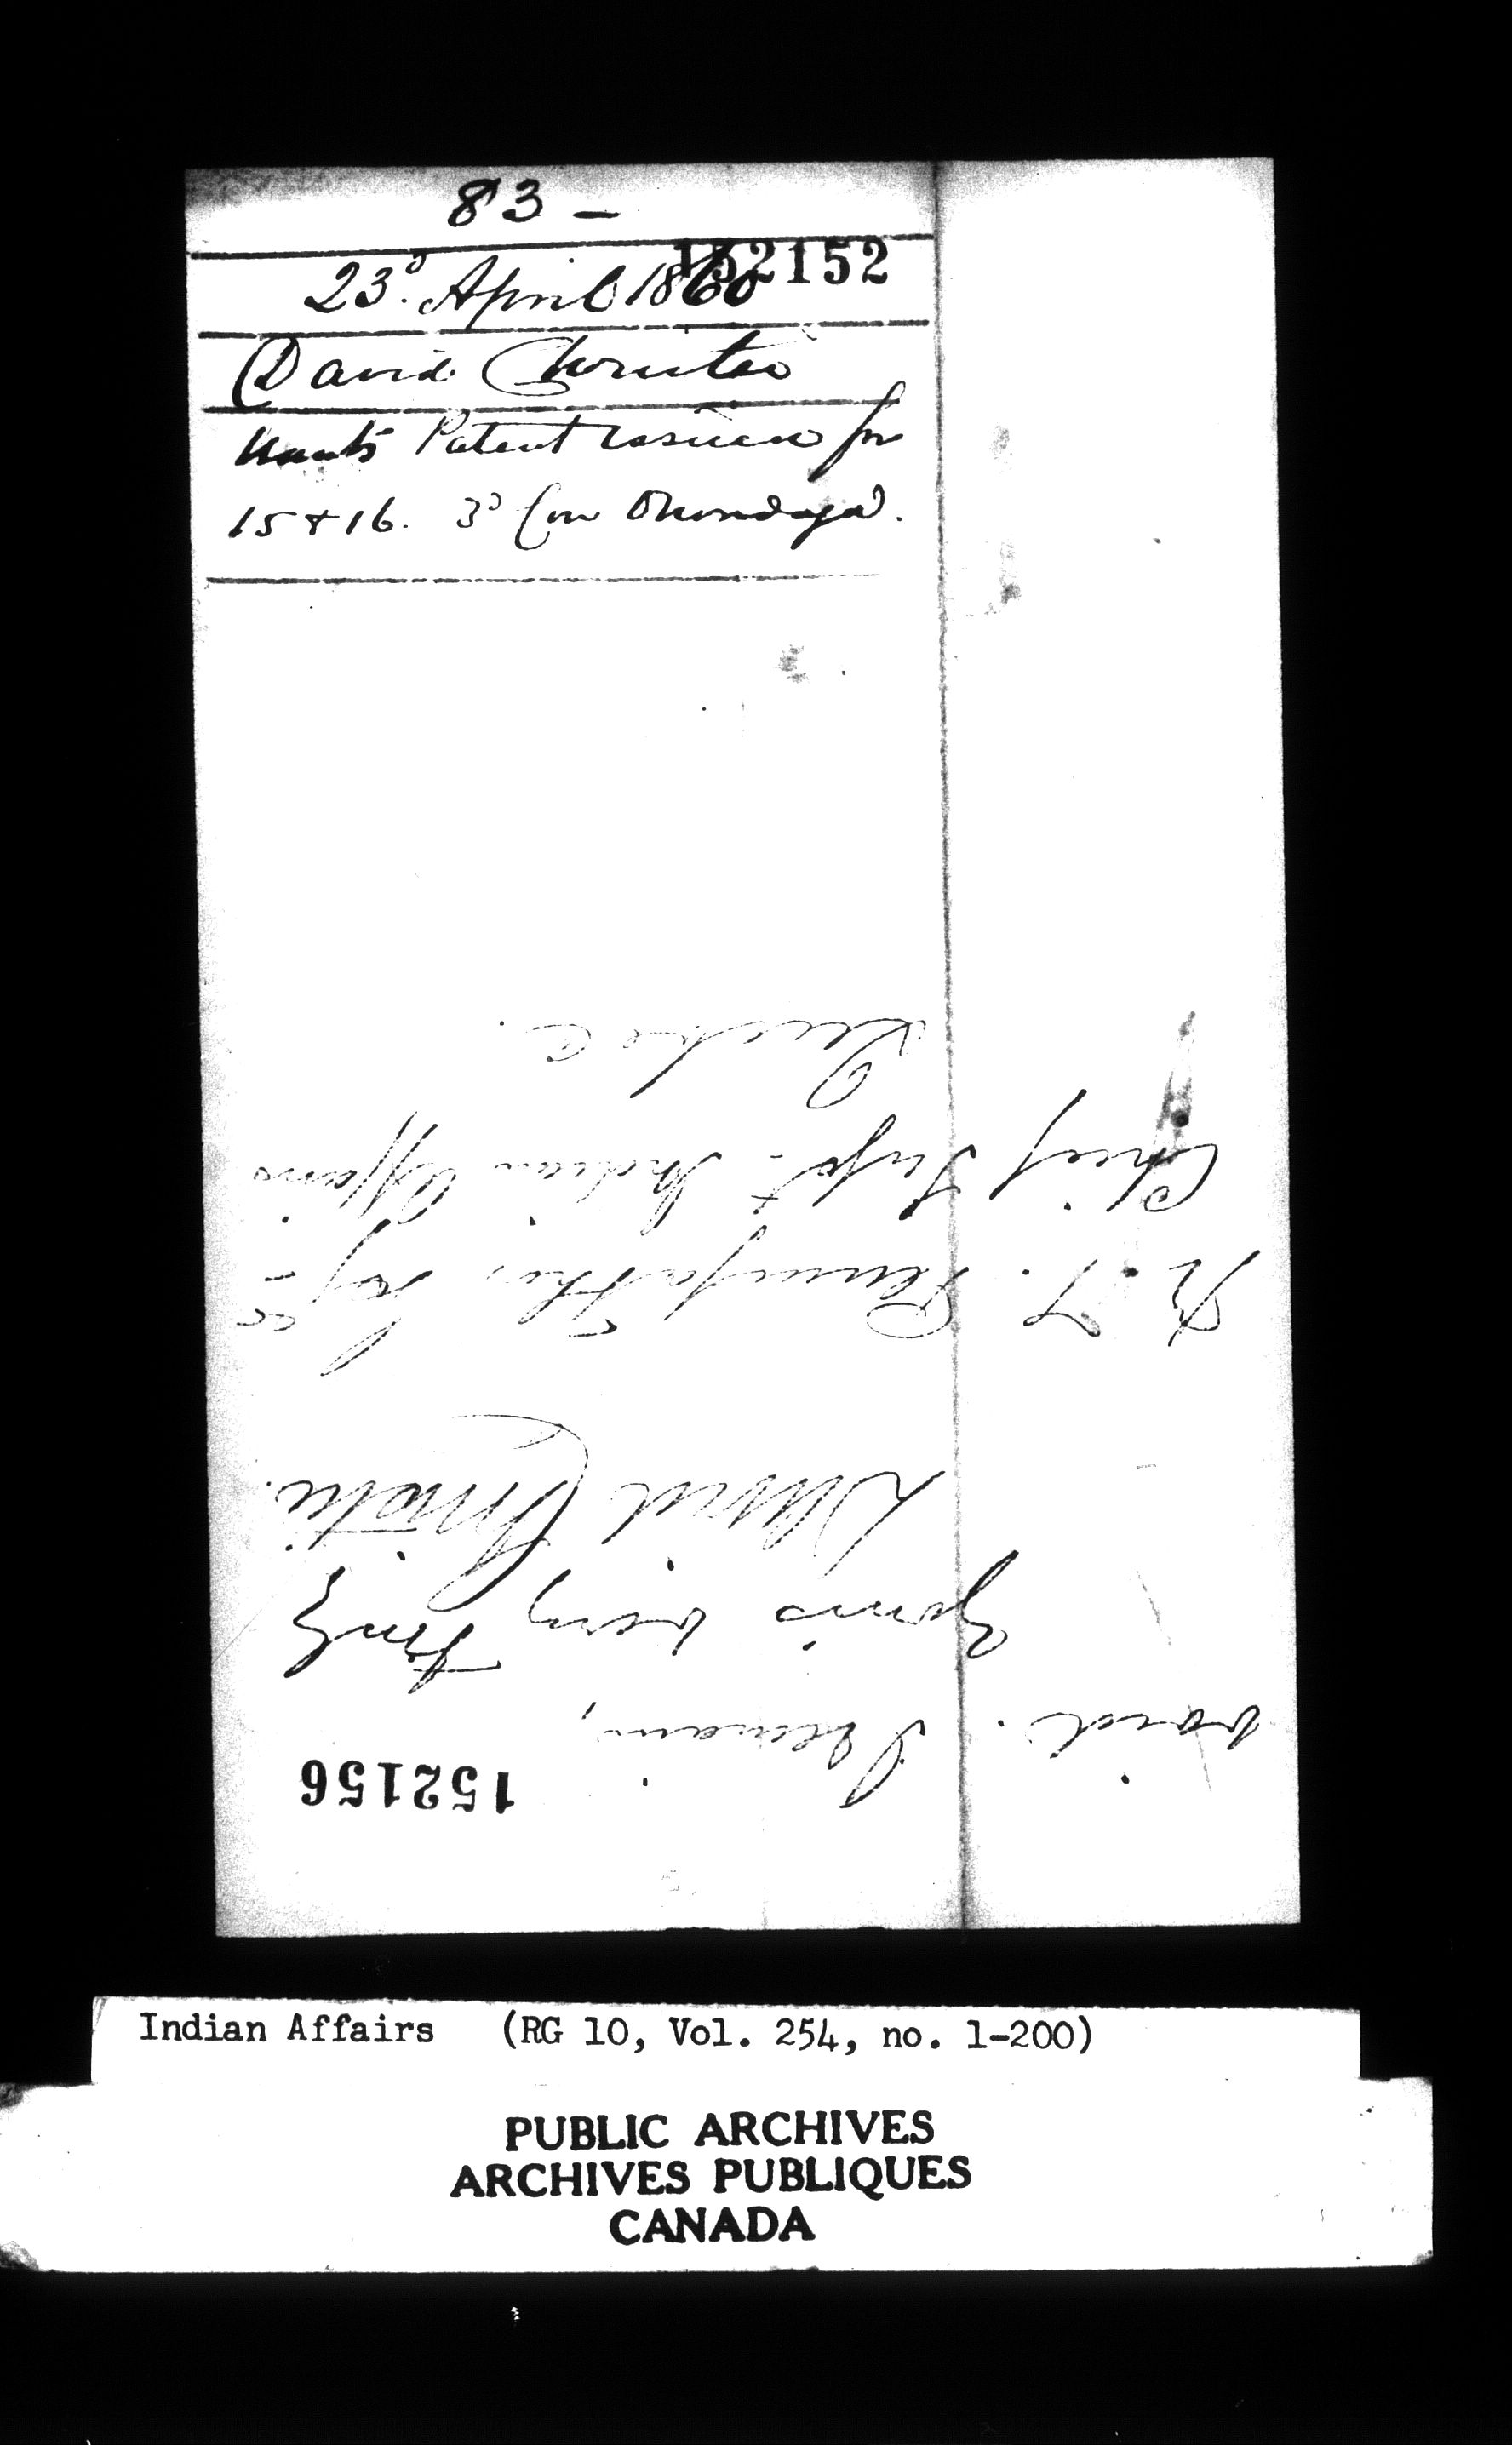 83 –
152152
23d. April 1860
David Christie
Wants Patent to issue for
15 & 16. 3d Con Onondaga.
152156
void. I remain,
Yours very Truly
David Christie.
R. T. Pennefather, Esq
Chief Supt. Indian Affairs
Quebec.
Indian Affairs (RG 10, Vol. 254, no. 1-200)
PUBLIC ARCHIVES
ARCHIVES PUBLIQUES
CANADA